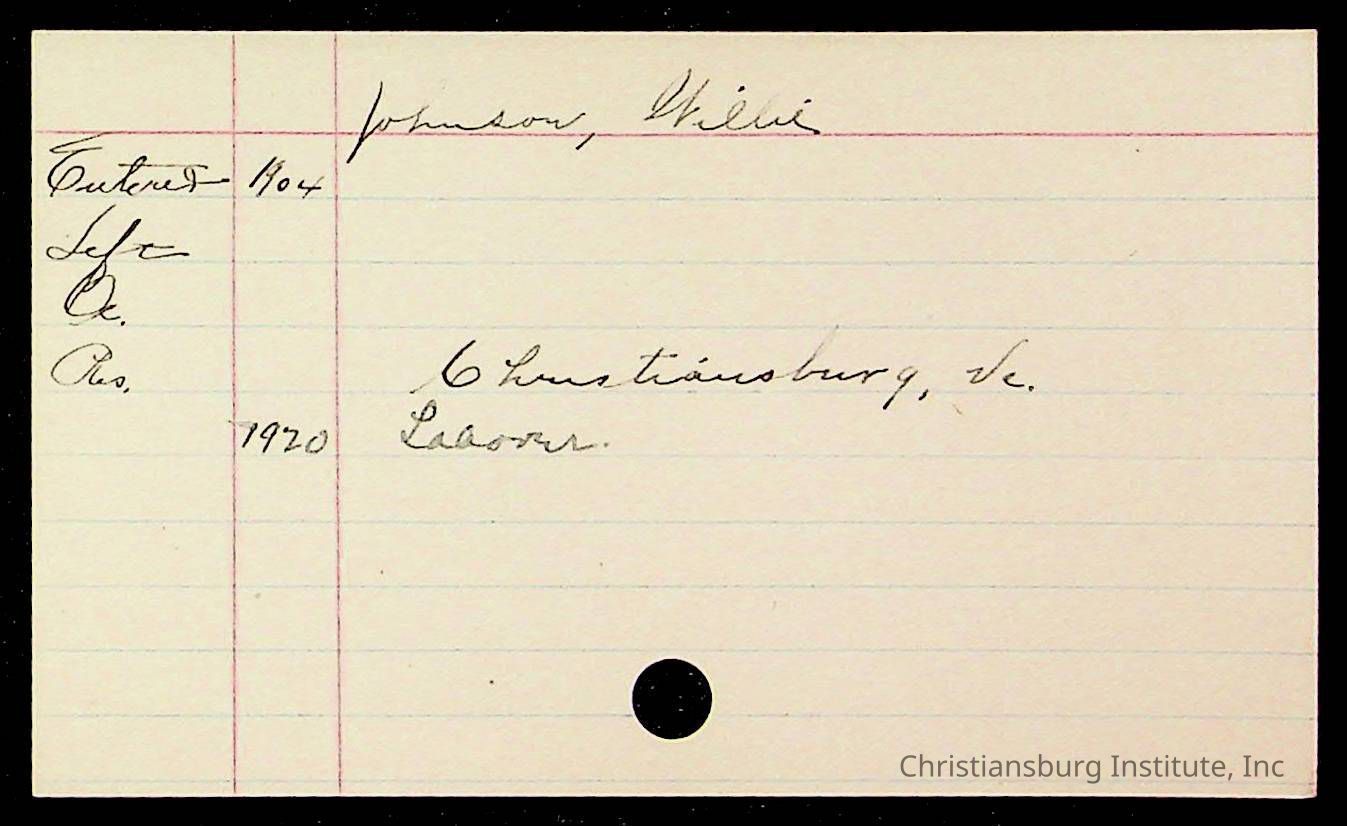 Johnson, Willie
Entered 1904
Left
Oc.
Res. Christiansburg, Va.
1920 Laborer.
Christiansburg Institute, Inc